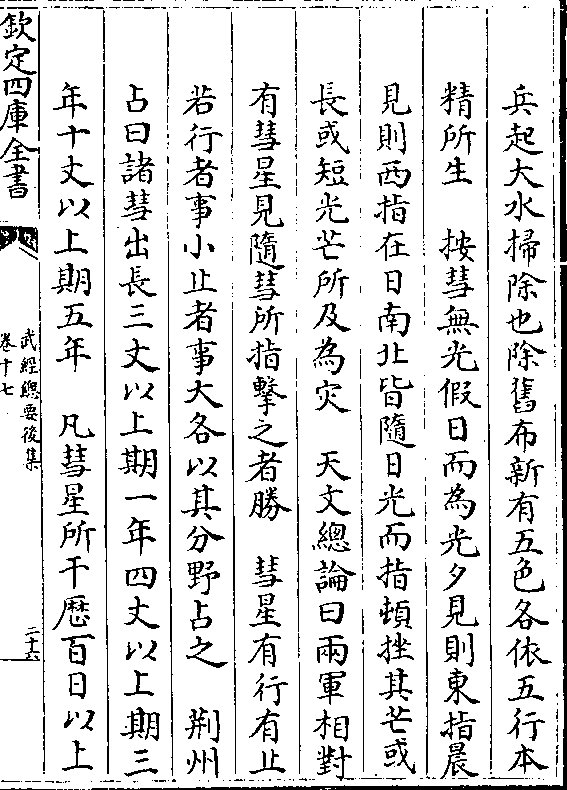 兵起大水掃除也除舊布新有五色各依五行本
精所生　按彗無光假日而為光夕見則東指晨
見則西指在日南北皆隨日光而指頓挫其芒或
長或短光芒所及為灾　天文總論曰兩軍相對
有彗星見隨彗所指擊之者勝　彗星有行有止
若行者事小止者事大各以其分野占之　荆州
占曰諸彗出長三丈以上期一年四丈以上期三
年十丈以上期五年　凡彗星所干歷百日以上
欽定四庫全書
武經總要後集
卷十七
二十六